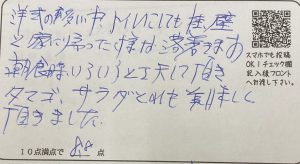 洋式の多い中、トイレにしても
と家に帰った様な落着きあ
朝食時いろいろと工夫して頂き
タマゴ、サラダとれも美味しく
頂きました
10点満点で 点
スマホでも投稿
OK！チェック欄
記入後フロント
へお渡し下さい。